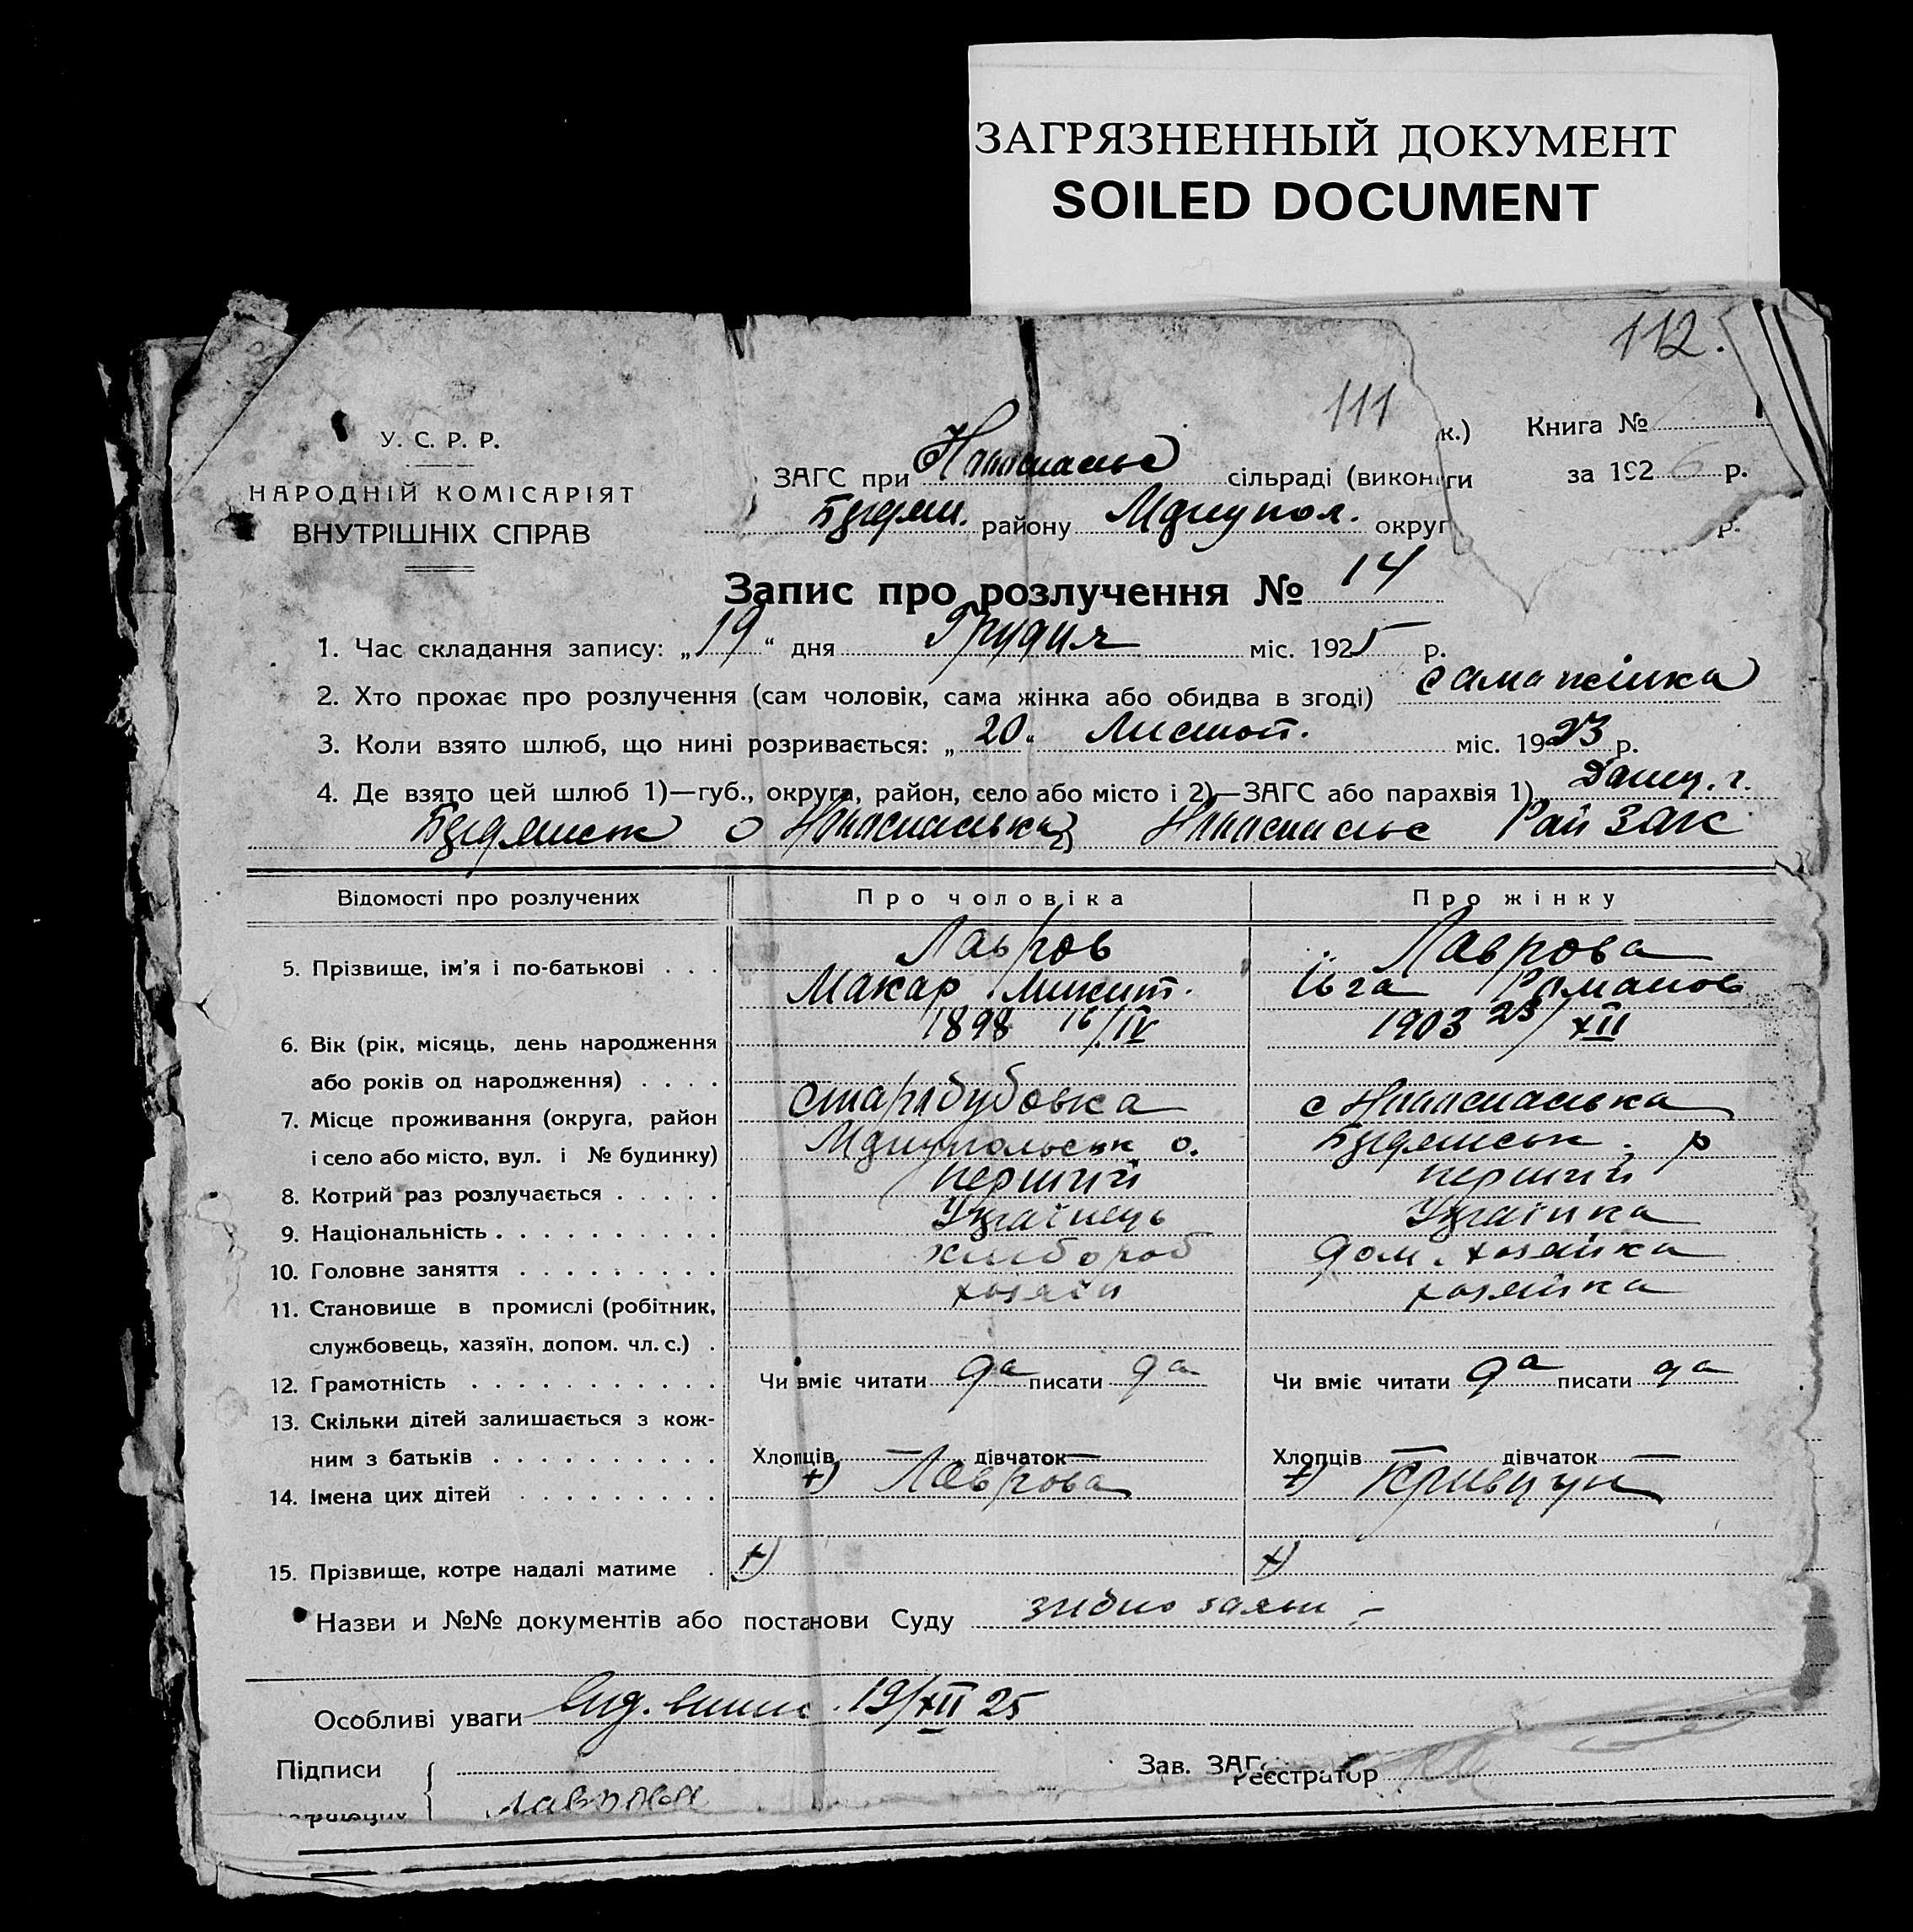 ЗАГРЯЗНЕННЫЙ ДОКУМЕНТ
SOILED DOCUMENT
112.
111
У. С. Р. Р.
НАРОДНІЙ КОМІСАРІЯТ
ВНУТРІШНІХ СПРАВ
к.) Книга №
ЗАГС при сільраді (викон ги за 192 р.
району Мариупол. округ р.
Запис про розлучення № 14
1. Час складання запису: „ 19 “ дня Грудня міс. 1925 р.
2. Хто прохає про розлучення (сам чоловік, сама жінка або обидва в згоді) сама жінка
3. Коли взято шлюб, що нині розривається: „ 20 “ Листоп. міс. 1923 р.
4. Де взято цей шлюб 1)—губ., округа, район, село або місто і 2)—ЗАГС або парахвія 1) Донец. г.
2) Рай Загс
Відомості про розлучених Про чоловіка Про жінку
5. Прізвище, ім’я і по-батькові . . . Лавров Лаврова
Макар Микит. Романов
6. Вік (рік, місяць, день народження 1898 16/IV 1903 23/XII
або років од народження) . . . .
7. Місце проживання (округа, район Старобубовка с
і село або місто, вул. і № будинку) Мариупольськ о. р
8. Котрий раз розлучається . . . . . перший перший
9. Національність . . . . . . . . . . Українець Українка
10. Головне заняття . . . . . . . . . хлібороб дом. хозяйка
11. Становище в промислі (робітник, хозяїн хозяйка
службовець, хазяїн, допом. чл. с.) .
12. Грамотність . . . . . . . . . . . Чи вміє читати да писати да Чи вміє читати да писати да
13. Скільки дітей залишається з кож-
ним з батьків . . . . . . . . . . Хлопців — дівчаток — Хлопців — дівчаток —
14. Імена цих дітей . . . . . . . . . +) Лаврова +) Кривцун
15. Прізвище, котре надалі матиме . +) +)
Назви и №№ документів або постанови Суду
Особливі уваги 19/XII 25
Підписи Зав. ЗАГ
Реєстратор
Лаврова